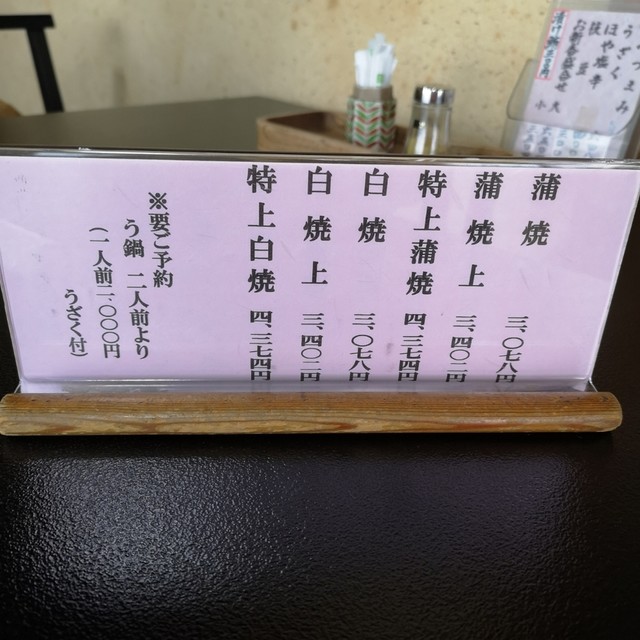 蒲焼 三、〇七八円
蒲焼上 三、四〇二円
特上蒲焼 四、三七四円
白焼 三、〇七八円
白焼上 三、四〇二円
特上白焼 四、三七四円
※要ご予約
う鍋 二人前より
(一人前 〇〇〇円
うざく付)
うざく
ほや塩辛
枝豆